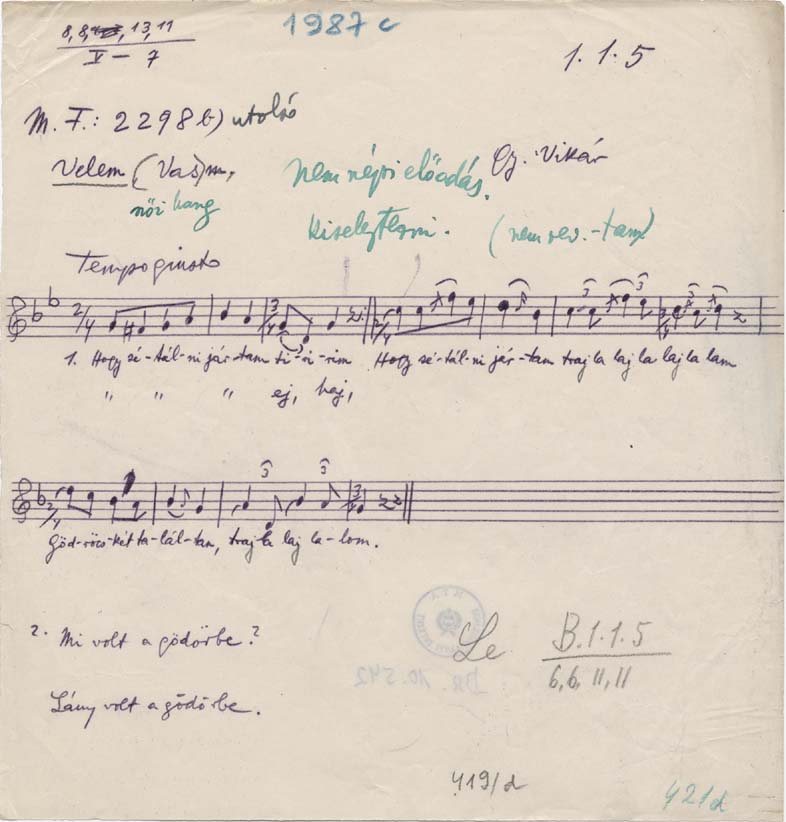 8, 8, 13, 11
V – 7
1987 c
1.1.5
M. F.: 2298 b) utolsó
Velem (Vas)m,
női hang
nem népi előadás.
Gy. Vikár
kiselejtezni. (nem rev.-tam)
Tempo giusto
2/4 3/4 2/4 3 3 3/4 3
1. Hogy sé-tál-ni jár-tam ti-ri-rim Hogy sé-tál-ni jár-tam traj la laj la laj la lam
" " " ej, haj,
2/4 3 3 3/4
Göd-röcs-két ta-lál-tam, traj la laj la-lom.
2. Mi volt a gödörbe?
Lány volt a gödörbe.
Le B.1.1.5
6,6,11,11
BR. 10.542
419/d
421d